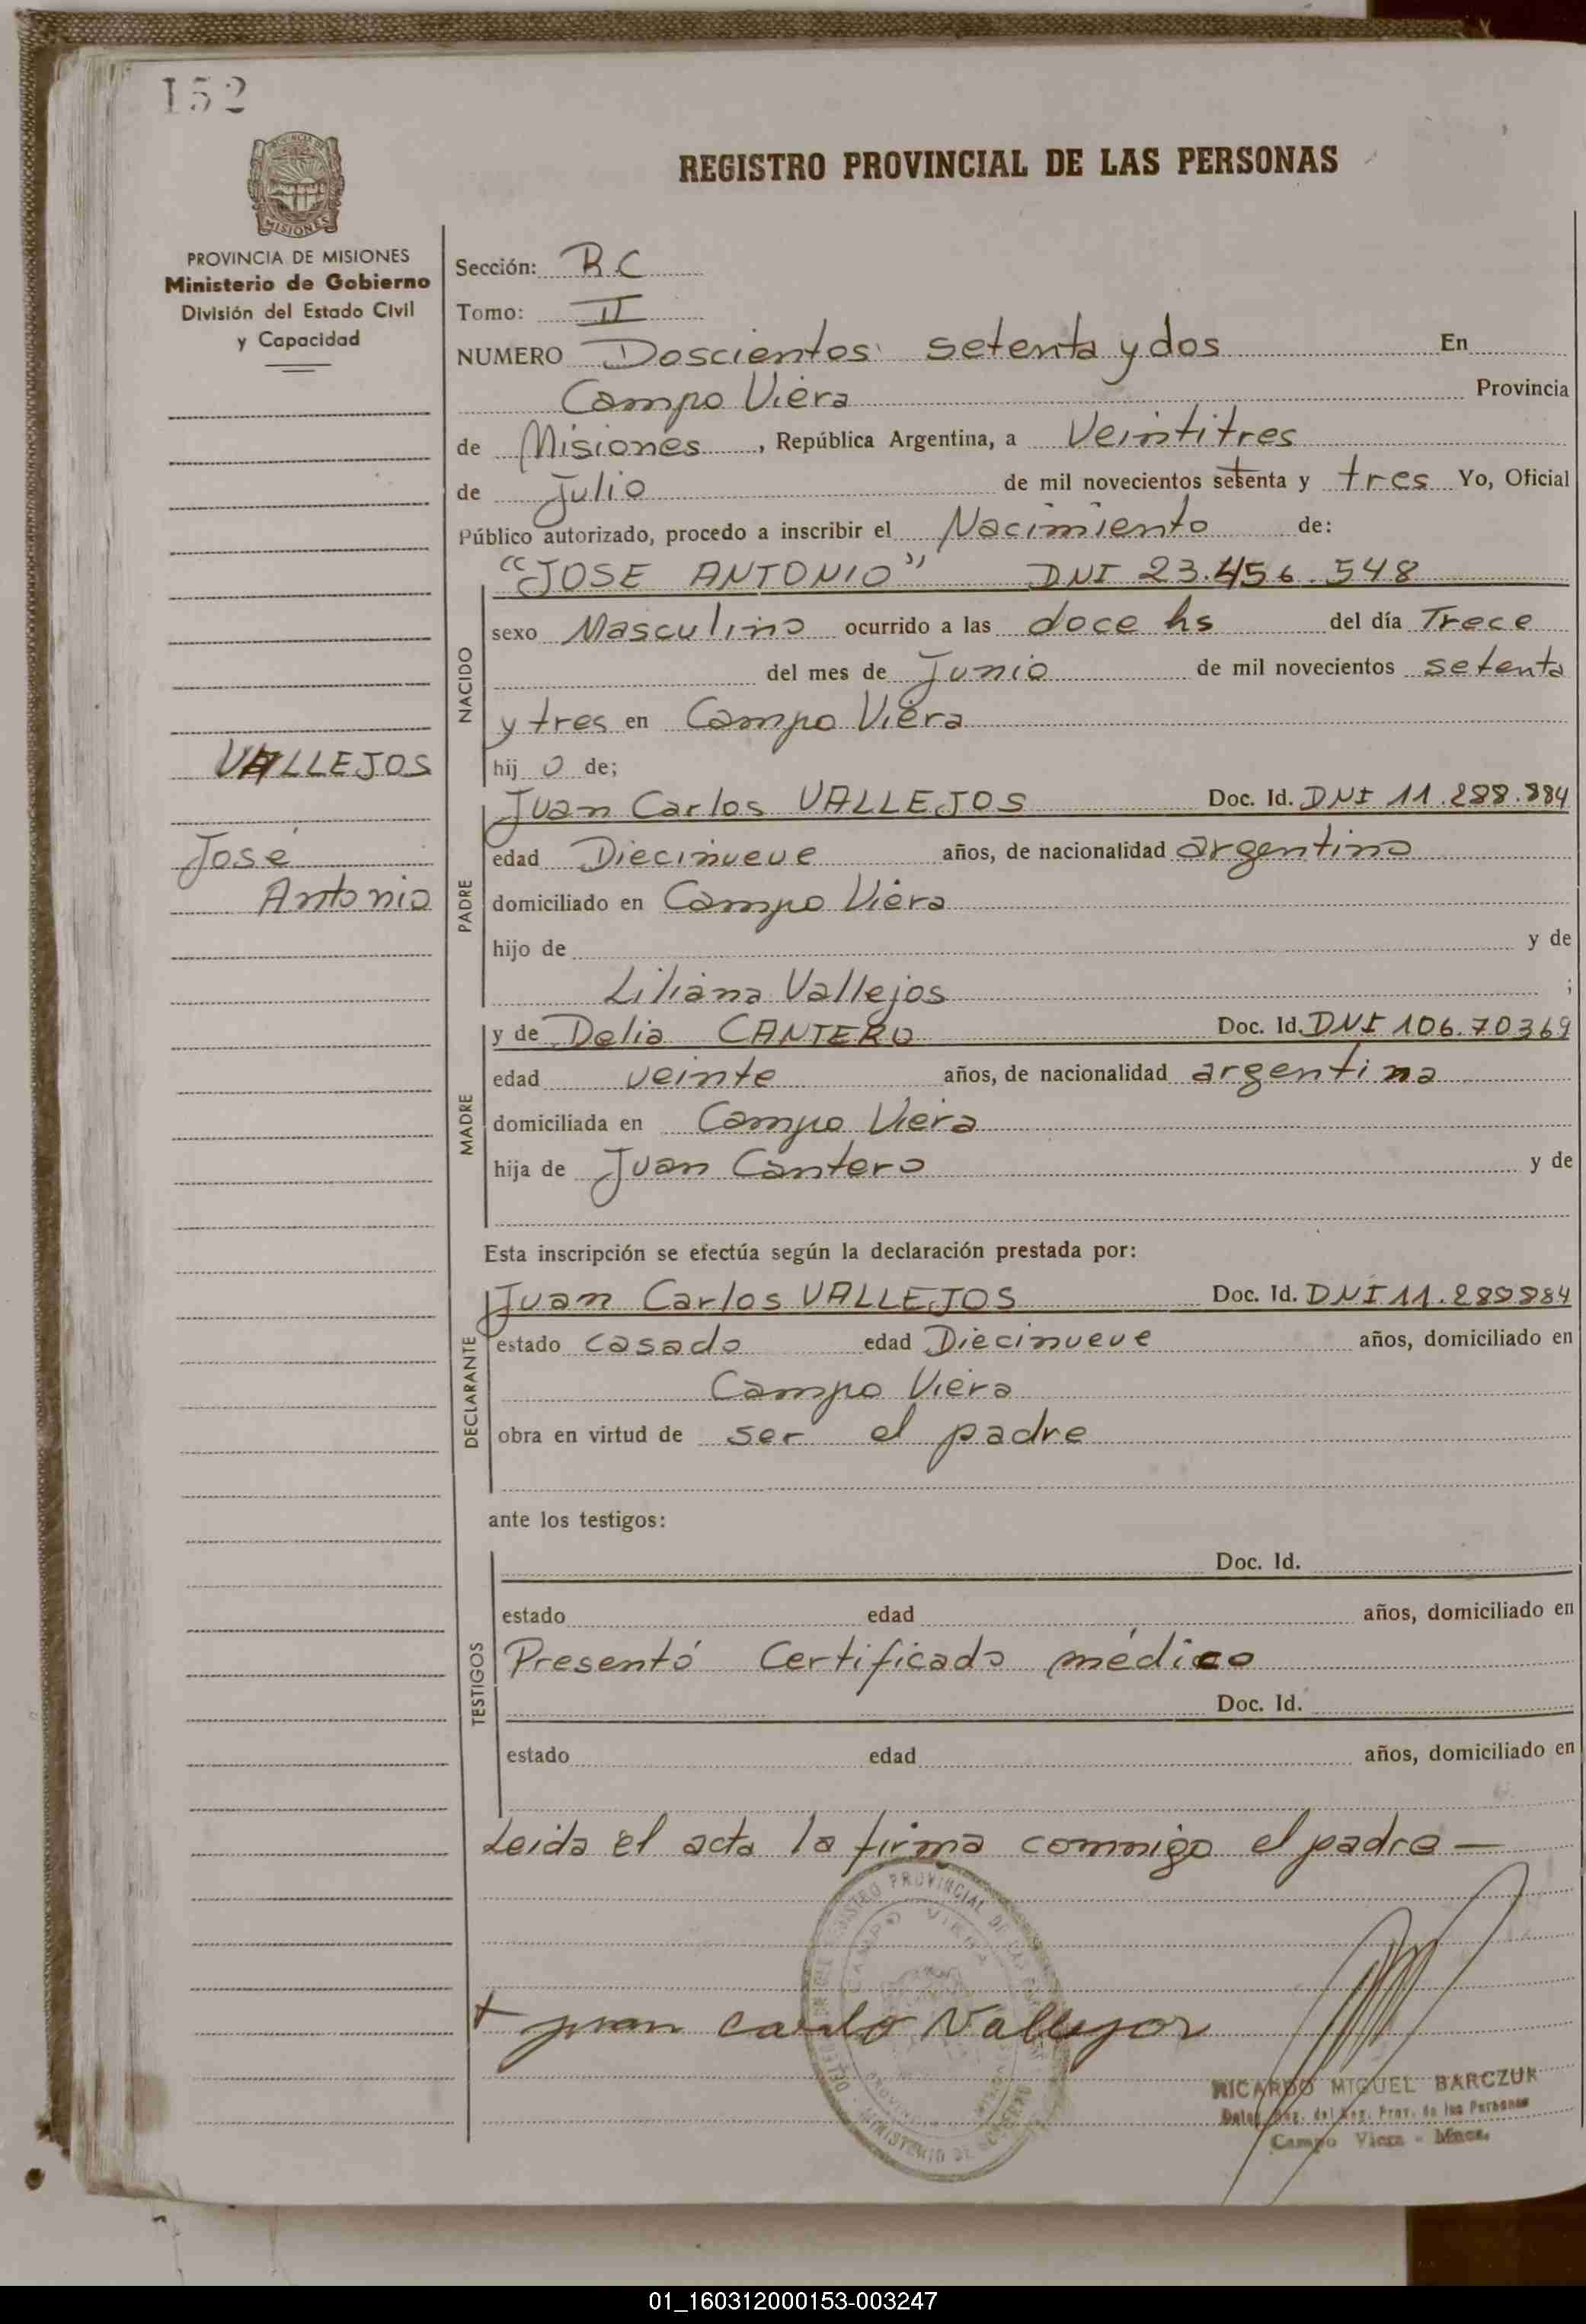 152
REGISTRO PROVINCIAL DE LAS PERSONAS
MISIONES
PROVINCIA DE MISIONES
Ministerio de Gobierno
División del Estado Civil
y Capacidad
VALLEJOS
José
Antonio
Sección: R.C
Tomo: II
NUMERO Doscientos setenta y dos En
Campo Viera Provincia
de Misiones, República Argentina, a Veintitres
de Julio de mil novecientos setenta y tres Yo, Oficial
Público autorizado, procedo a inscribir el Nacimiento de:
"JOSE ANTONIO" DNI 23.456.548
NACIDO
sexo Masculino ocurrido a las doce hs del día Trece
del mes de Junio de mil novecientos setenta
y tres en Campo Viera
hij o de;
PADRE
Juan Carlos VALLEJOS Doc. Id. DNI 11.288.884
edad Diecinueve años, de nacionalidad argentino
domiciliado en Campo Viera
hijo de y de
Liliana Vallejos ;
MADRE
y de Delia CANTERO Doc. Id. DNI 106.70369
edad veinte años, de nacionalidad argentina
domiciliada en Campo Viera
hija de Juan Cantero y de
Esta inscripción se efectúa según la declaración prestada por:
DECLARANTE
Juan Carlos VALLEJOS Doc. Id. DNI 11.288884
estado casado edad Diecinueve años, domiciliado en
Campo Viera
obra en virtud de ser el padre
ante los testigos:
TESTIGOS
Doc. Id.
estado edad años, domiciliado en
Presentó Certificado médico
Doc. Id.
estado edad años, domiciliado en
Leida el acta la firma commigo el padre —
+ juan carlo Vallejos
RICARDO MIGUEL BARCZUK
Campo Viera - Mnes.
01_160312000153-003247